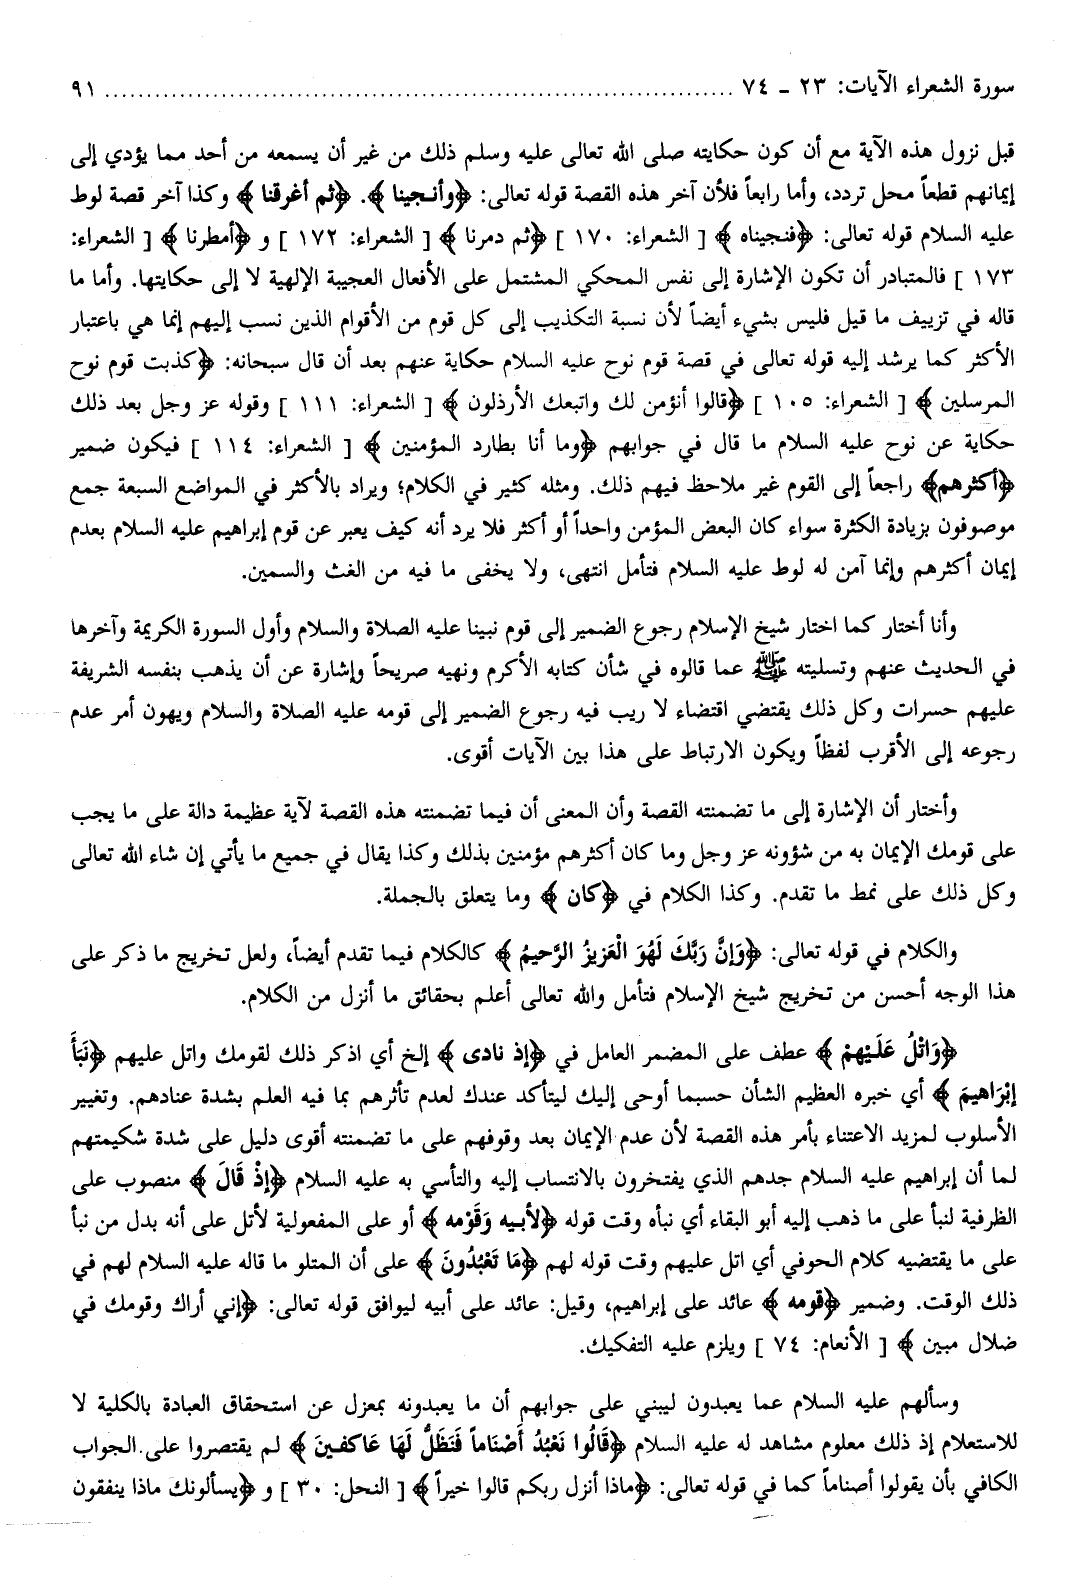 سورة الشعراء الآيات: ٢٣ ـ ٧٤ ........................................................................... ٩١
قبل نزول هذه الآية مع أن كون حكايته صلى الله تعالى عليه وسلم ذلك من غير أن يسمعه من أحد مما يؤدي إلى
إيمانهم قطعاً محل تردد، وأما رابعاً فلأن آخر هذه القصة قوله تعالى: ﴿وأنجينا﴾. ﴿ثم أغرقنا﴾ وكذا آخر قصة لوط
عليه السلام قوله تعالى: ﴿فنجيناه﴾ [ الشعراء: ١٧٠ ] ﴿ثم دمرنا﴾ [ الشعراء: ١٧٢ ] و ﴿أمطرنا﴾ [ الشعراء:
١٧٣ ] فالمتبادر أن تكون الإشارة إلى نفس المحكي المشتمل على الأفعال العجيبة الإلهية لا إلى حكايتها. وأما ما
قاله في تزييف ما قيل فليس بشيء أيضاً لأن نسبة التكذيب إلى كل قوم من الأقوام الذين نسب إليهم إنما هي باعتبار
الأكثر كما يرشد إليه قوله تعالى في قصة قوم نوح عليه السلام حكاية عنهم بعد أن قال سبحانه: ﴿كذبت قوم نوح
المرسلين﴾ [ الشعراء: ١٠٥ ] ﴿قالوا أنؤمن لك واتبعك الأرذلون﴾ [ الشعراء: ١١١ ] وقوله عز وجل بعد ذلك
حكاية عن نوح عليه السلام ما قال في جوابهم ﴿وما أنا بطارد المؤمنين﴾ [ الشعراء: ١١٤ ] فيكون ضمير
﴿أكثرهم﴾ راجعاً إلى القوم غير ملاحظ فيهم ذلك. ومثله كثير في الكلام؛ ويراد بالأكثر في المواضع السبعة جمع
موصوفون بزيادة الكثرة سواء كان البعض المؤمن واحداً أو أكثر فلا يرد أنه كيف يعبر عن قوم إبراهيم عليه السلام بعدم
إيمان أكثرهم وإنما آمن له لوط عليه السلام فتأمل انتهى، ولا يخفى ما فيه من الغث والسمين.
وأنا أختار كما اختار شيخ الإسلام رجوع الضمير إلى قوم نبينا عليه الصلاة والسلام وأول السورة الكريمة وآخرها
في الحديث عنهم وتسليته ﷺ عما قالوه في شأن كتابه الأكرم ونهيه صريحاً وإشارة عن أن يذهب بنفسه الشريفة
عليهم حسرات وكل ذلك يقتضي اقتضاء لا ريب فيه رجوع الضمير إلى قومه عليه الصلاة والسلام ويهون أمر عدم
رجوعه إلى الأقرب لفظاً ويكون الارتباط على هذا بين الآيات أقوى.
وأختار أن الإشارة إلى ما تضمنته القصة وأن المعنى أن فيما تضمنته هذه القصة لآية عظيمة دالة على ما يجب
على قومك الإيمان به من شؤونه عز وجل وما كان أكثرهم مؤمنين بذلك وكذا يقال في جميع ما يأتي إن شاء الله تعالى
وكل ذلك على نمط ما تقدم. وكذا الكلام في ﴿كان﴾ وما يتعلق بالجملة.
والكلام في قوله تعالى: ﴿وَإِنَّ رَبَّكَ لَهُوَ الْعَزِيزُ الرَّحِيمُ﴾ كالكلام فيما تقدم أيضاً، ولعل تخريج ما ذكر على
هذا الوجه أحسن من تخريج شيخ الإسلام فتأمل والله تعالى أعلم بحقائق ما أنزل من الكلام.
﴿وَاتْلُ عَلَيْهِمْ﴾ عطف على المضمر العامل في ﴿إذ نادى﴾ إلخ أي اذكر ذلك لقومك واتل عليهم ﴿نَبَأَ
إِبْرَاهِيمَ﴾ أي خبره العظيم الشأن حسبما أوحى إليك ليتأكد عندك لعدم تأثرهم بما فيه العلم بشدة عنادهم. وتغيير
الأسلوب لمزيد الاعتناء بأمر هذه القصة لأن عدم الإيمان بعد وقوفهم على ما تضمنته أقوى دليل على شدة شكيمتهم
لما أن إبراهيم عليه السلام جدهم الذي يفتخرون بالانتساب إليه والتأسي به عليه السلام ﴿إِذْ قَالَ﴾ منصوب على
الظرفية لنبأ على ما ذهب إليه أبو البقاء أي نبأه وقت قوله ﴿لأَبيه وَقَوْمه﴾ أو على المفعولية لأتل على أنه بدل من نبأ
على ما يقتضيه كلام الحوفي أي اتل عليهم وقت قوله لهم ﴿مَا تَعْبُدُونَ﴾ على أن المتلو ما قاله عليه السلام لهم في
ذلك الوقت. وضمير ﴿قومه﴾ عائد على إبراهيم، وقيل: عائد على أبيه ليوافق قوله تعالى: ﴿إني أراك وقومك في
ضلال مبين﴾ [ الأنعام: ٧٤ ] ويلزم عليه التفكيك.
وسألهم عليه السلام عما يعبدون ليبني على جوابهم أن ما يعبدونه بمعزل عن استحقاق العبادة بالكلية لا
للاستعلام إذ ذلك معلوم مشاهد له عليه السلام ﴿قَالُوا نَعْبُدُ أَصْنَاماً فَنَظَلُّ لَهَا عَاكفينَ﴾ لم يقتصروا على الجواب
الكافي بأن يقولوا أصناماً كما في قوله تعالى: ﴿ماذا أنزل ربكم قالوا خيراً﴾ [ النحل: ٣٠ ] و ﴿يسألونك ماذا ينفقون